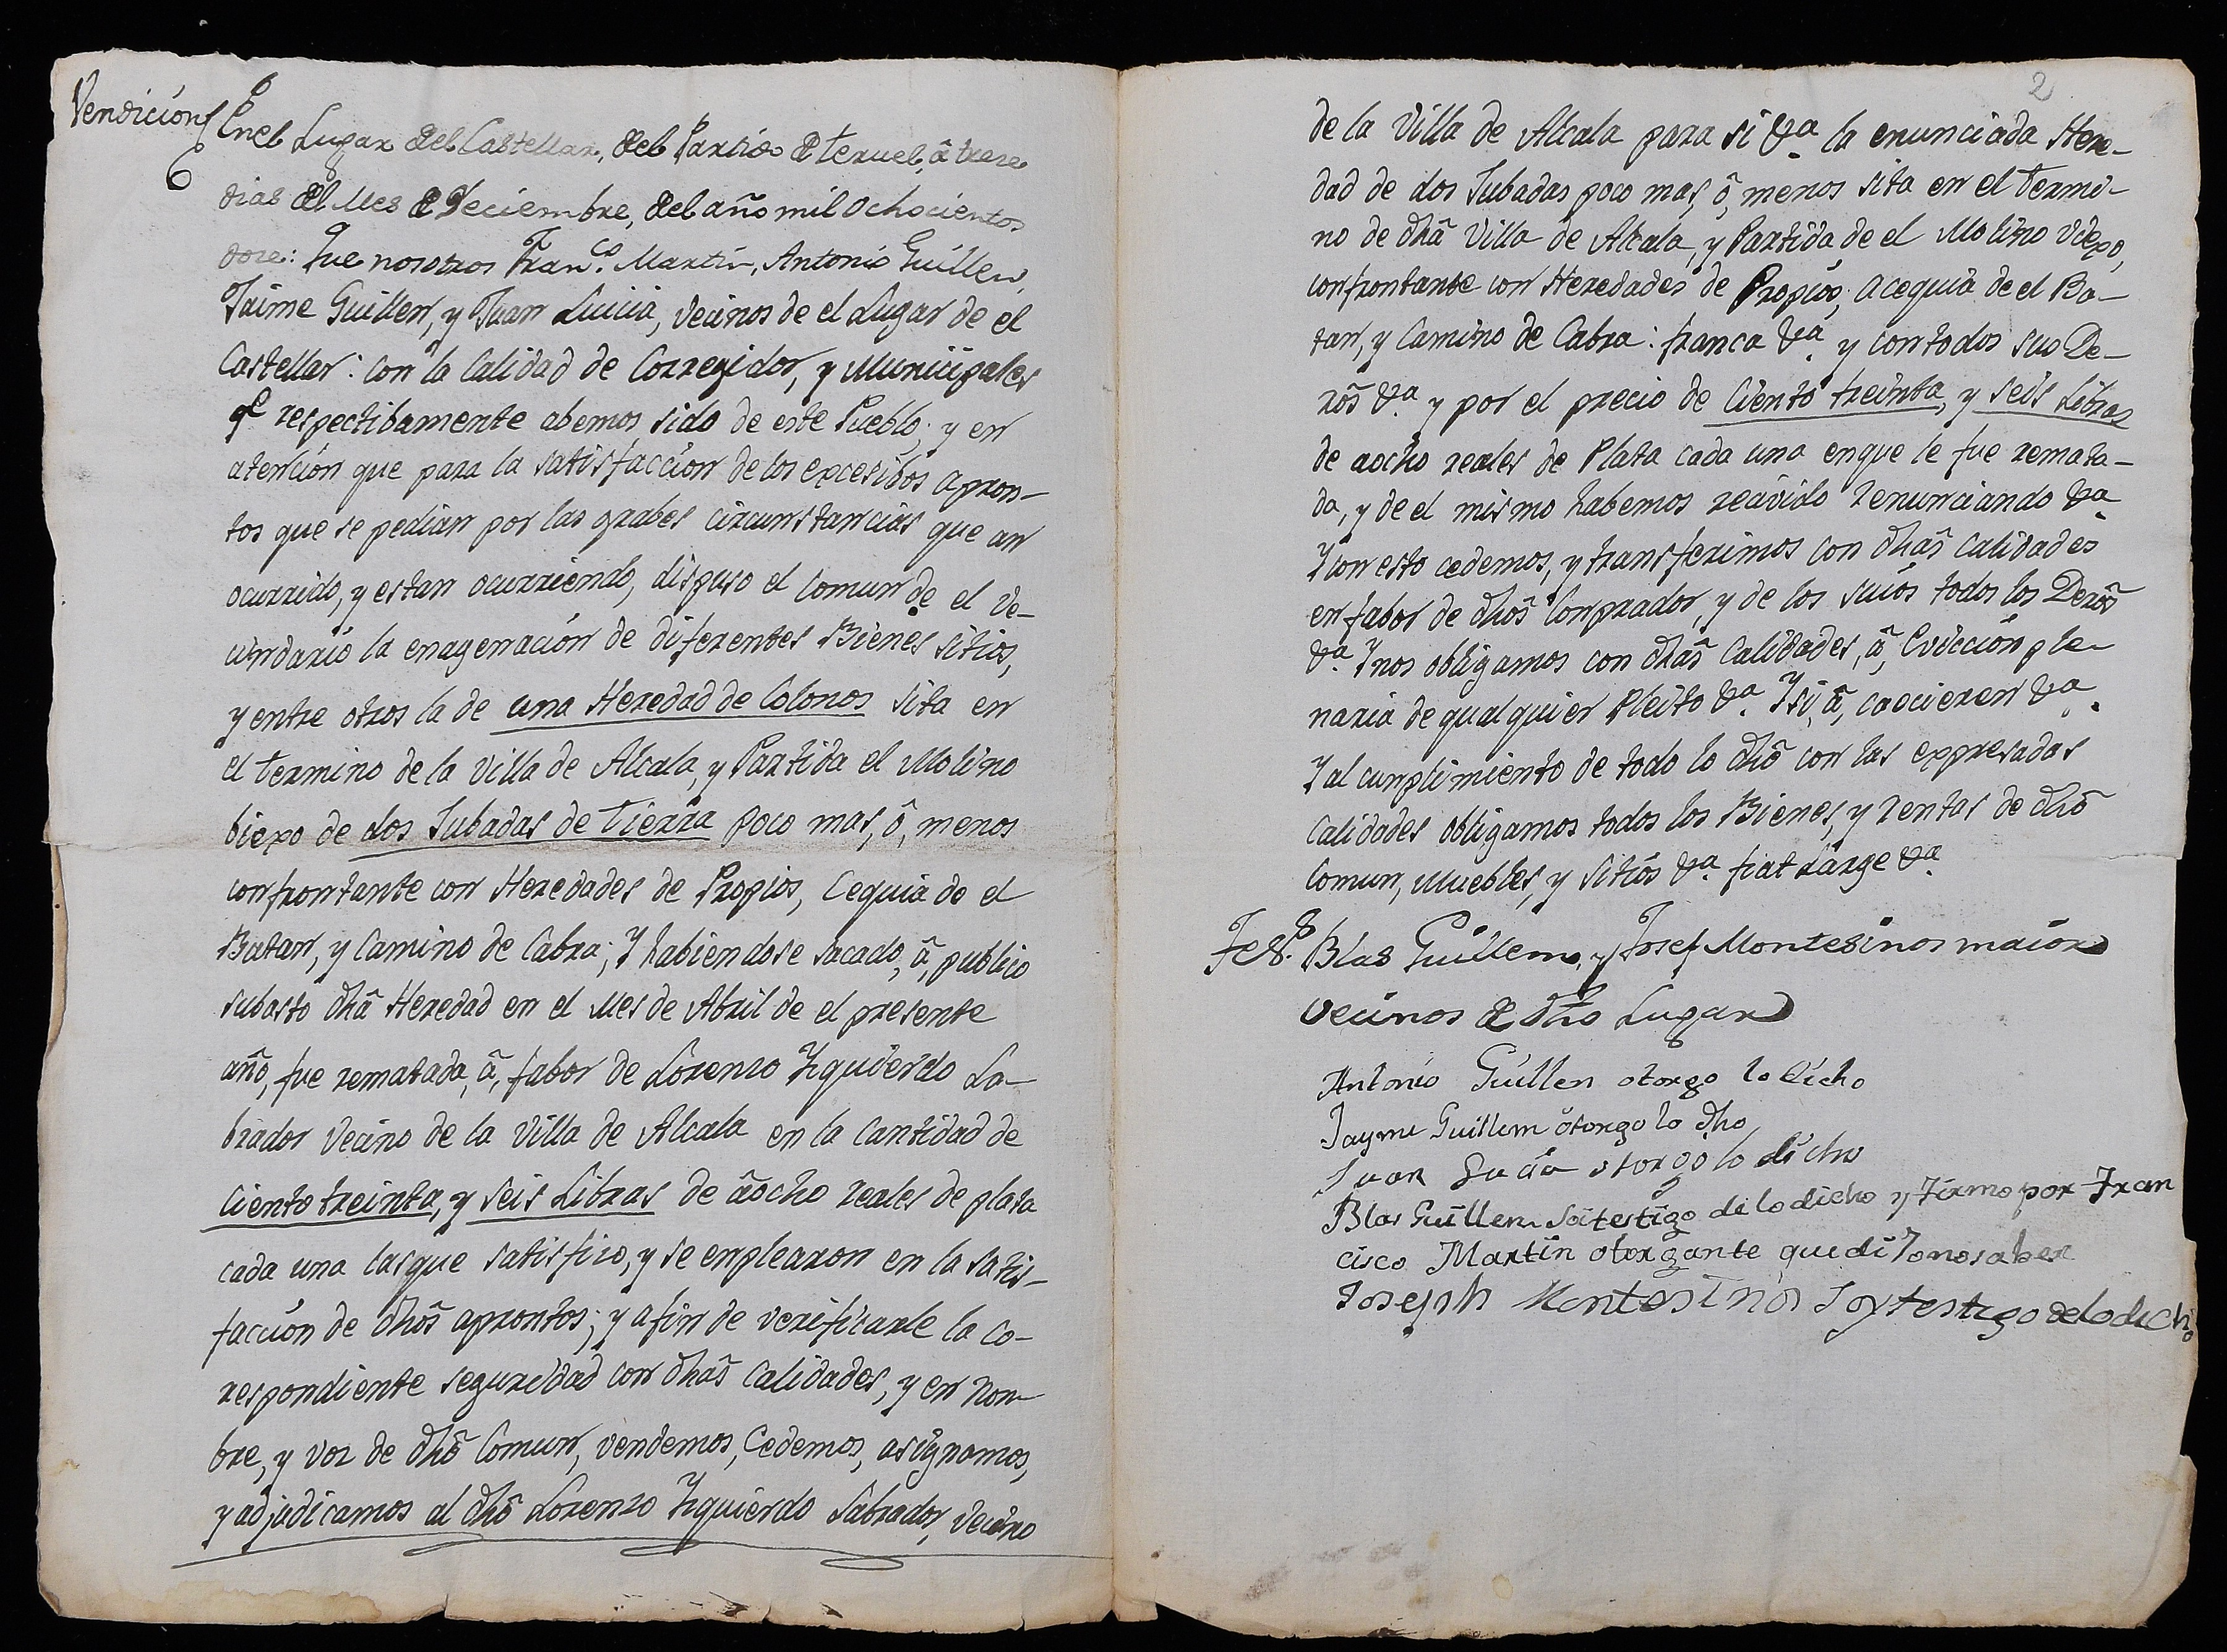 Vendicion
6
En el Lugar del Castellar, del Partido de Teruel, â trece
dias del Mes de Deciembre, del año mil ochocientos
doze: Que nosotros Franco. Martin, Antonio Guillen,
Jaime Guillen, y Juan Lucia, vecinos de el Lugar de el
Castellar: con la Calidad de Corregidor, y Municipales
qe respectibamente abemos sido de este Pueblo; y en
atencion que para la satisfaccion de los excesibos apron-
tos que se pedian por las grabes circunstancias que an
ocurrido, y estan ocurriendo, dispuso el comun de el ve-
cindario la enagenacion de diferentes Bienes sitios,
y entre otros la de una Heredad de Colonos sita en
el termino de la Villa de Alcala, y Partida el Molino
biexo de dos Jubadas de Tierra poco mas, ô, menos
confrontante con Heredades de Propios, Cequia de el
Batan, y Camino de Cabra; Y habiendose sacado, â, publico
subasto dhâ Heredad en el Mes de Abril de el presente
año, fue rematada, â, fabor de Lorenzo Yzquierdo La-
brador Vecino de la Villa de Alcala en la Cantidad de
Ciento treinta, y seis Libras de âocho reales de plata
cada una las que satisfizo, y se enplearon en la satis-
faccion de dhôs aprontos; y a fin de verificarle la co-
respondiente seguridad con dhâs Calidades, y en nom-
bre, y voz de dhô Comun, vendemos, Cedemos, asignamos,
y adjudicamos al dhô Lorenzo Yzquierdo Labrador, vecino
2
de la Villa de Alcala para si &a. la enunciada Here-
dad de dos Jubadas poco mas, ô, menos sita en el termi-
no de dhâ Villa de Alcala, y Partida de el Molino Viexo,
confrontante con Heredades de Propios, Acequia de el Ba-
tan, y Camino de Cabra: franca &a. y con todos sus De-
rôs &a. y por el precio de Ciento treinta, y seis Libras
de aocho reales de Plata cada una en que le fue remata-
da, y de el mismo habemos recivido renunciando &a.
Y con esto cedemos, y transferimos con dhâs Calidades
en fabor de dhôs Conprador, y de los suios todos los Derôs
&a. Y nos obligamos con dhâs Calidades, â, Eviccion ple-
naria de qualquier Pleito &a. Y si, â, caecieren &a.
Y al cunplimiento de todo lo dhô con las expresadas
Calidades obligamos todos los Bienes, y rentas de dhô
Comun, Muebles, y Sitios &a. fiat Large &a.
Tesgo. Blas Guillem, y Josef Montesinos maior
vecinos de dho Lugar
Antonio Guillen otorgo lo dicho
Jayme Guillem ôtorgo lo dho
Juan Lucia otorgo lo dicho
Blas Guillem soi testigo de lo dicho y firmo por Fran
cisco Martin otorgante que dijo no saber
Joseph Montesinos Soy testigo de lo dicho